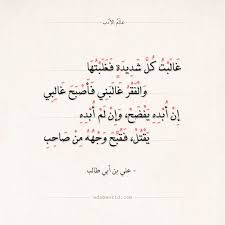 عالم الأدب
غَالَبْتُ كُلَّ شَدِيدَةٍ فَغَلَبْتُهَا
وَالفَقْرُ غَالَبَنِي فَأَصْبَحَ غَالِبِي
إِنْ أُبْدِهِ يَفْضَحْ، وَإِنْ لَمْ أُبْدِهِ
يَقْتُلْ، فَقُبِّحَ وَجْهُهُ مِنْ صَاحِبِ
- علي بن أبي طالب -
adabworld.com